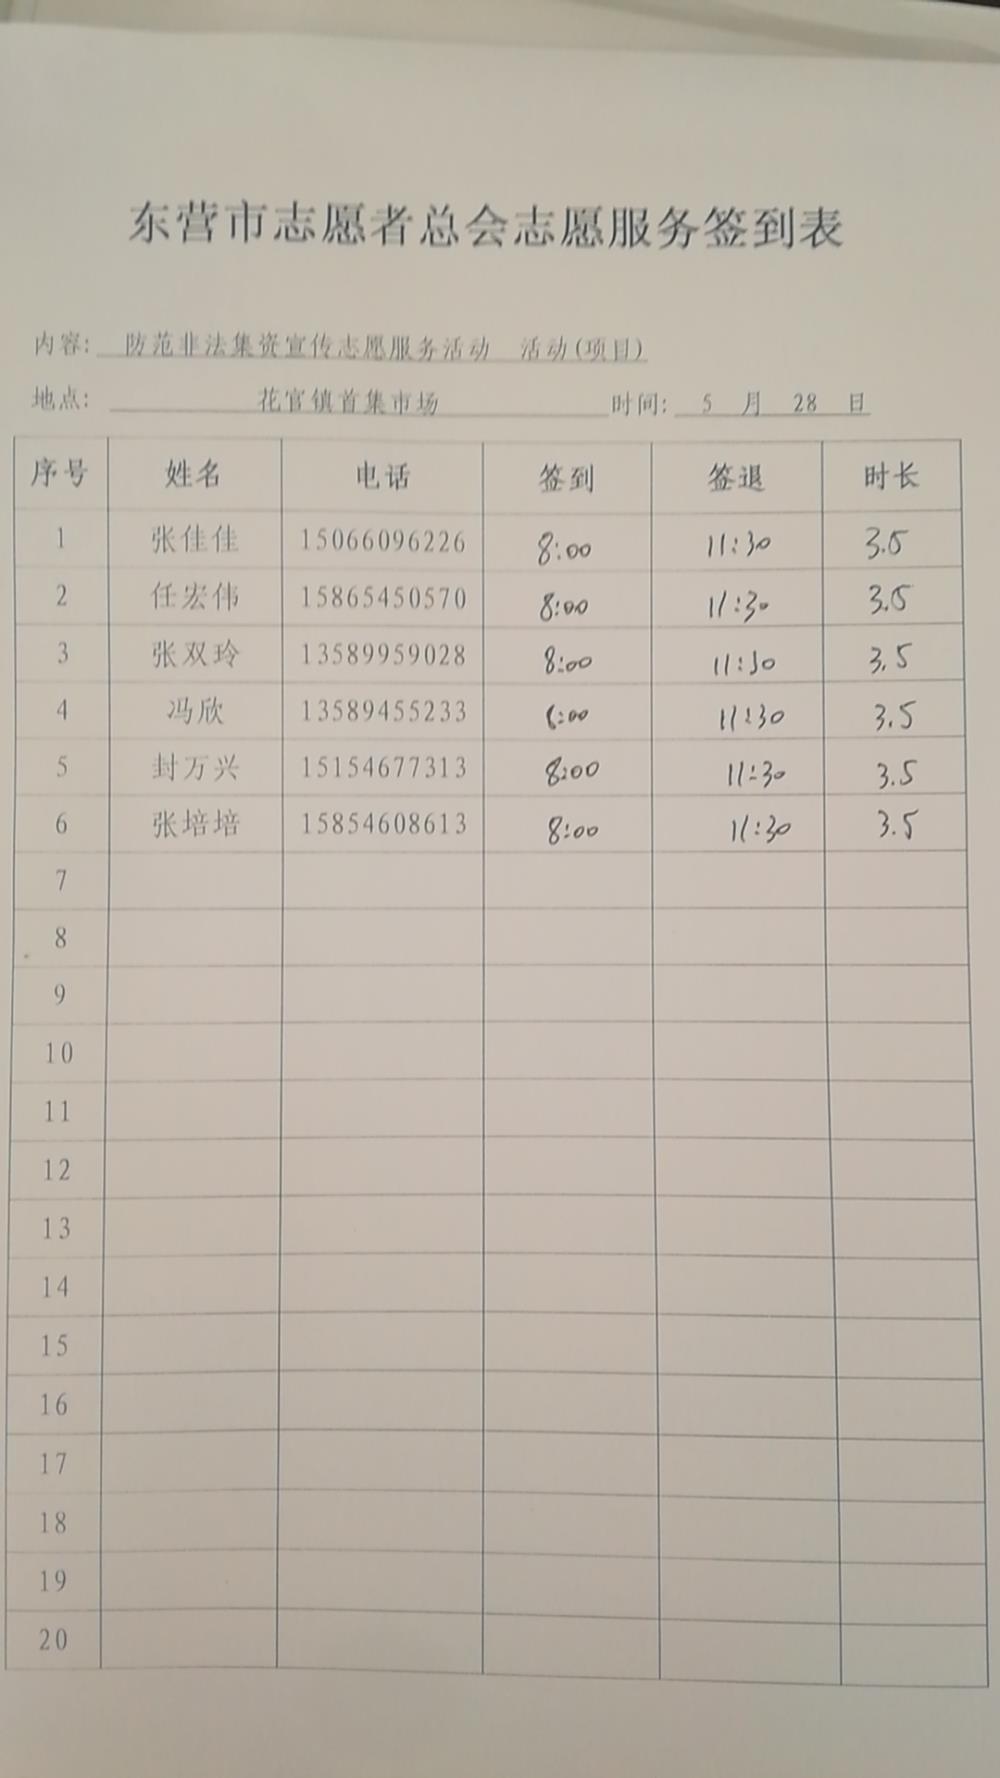 东营市志愿者总会志愿服务签到表
内容: 防范非法集资宣传志愿服务活动 活动(项目)
地点: 花官镇首集市场 时间: 5 月 28 日
序号 姓名 电话 签到 签退 时长
1 张佳佳 15066096226 8:00 11:30 3.5
2 任宏伟 15865450570 8:00 11:30 3.5
3 张双玲 13589959028 8:00 11:30 3.5
4 冯欣 13589455233 8:00 11:30 3.5
5 封万兴 15154677313 8:00 11:30 3.5
6 张培培 15854608613 8:00 11:30 3.5
7
8
9
10
11
12
13
14
15
16
17
18
19
20